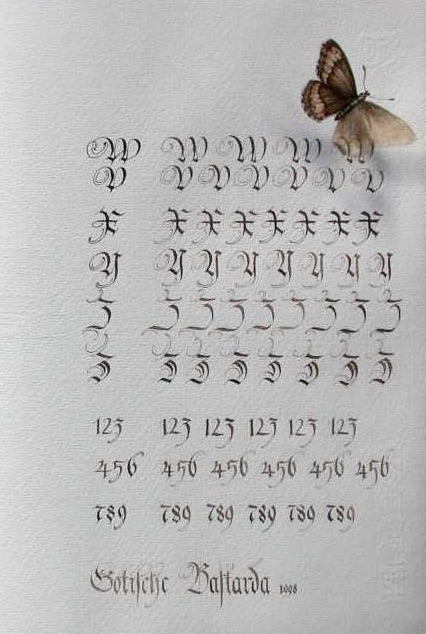 W W W W W
V V V V V V V
X X X X X X X X
Y Y Y Y Y Y Y Y
Z Z Z Z Z Z Z Z Z
Z Z Z Z Z Z Z Z
123 123 123 123 123 123
456 456 456 456 456 456
789 789 789 789 789 789
Gotische Bastarda 1998